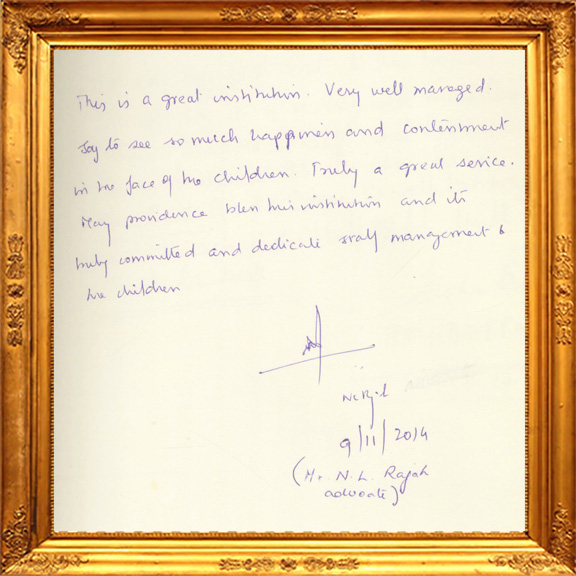 This is a great institution. Very well managed.
Joy to see so much happiness and contentment
in the face of the children. Truly a great service.
May providence bless this institution and its
truly committed and dedicate staff management &
the children
9/11/2014
(Mr. N.L. Rajah
advocate)